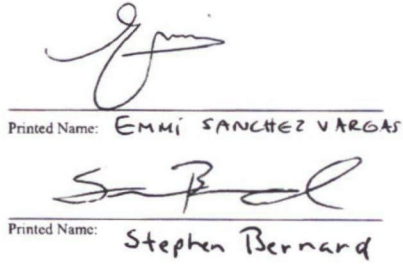 Printed Name: EMMi SANCHEZ VARGAS
Printed Name: Stephen Bernard